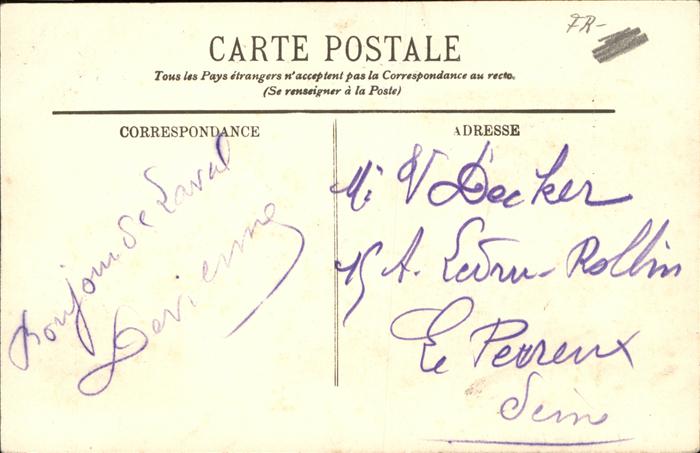 FR-
CARTE POSTALE
Tous les Pays étrangers n'acceptent pas la Correspondance au recto.
(Se renseigner à la Poste)
CORRESPONDANCE
Bonjour de Laval
Devienne
ADRESSE
Mr V Decker
15 A. Ledru-Rollin
Le Perreux
Seine